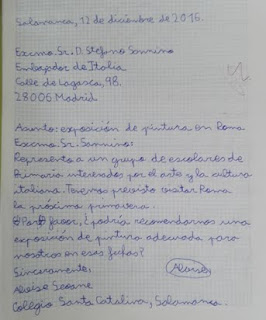 Salamanca, 12 de diciembre de 2016.
Excmo. Sr. D. Stefano Sannino
Embajador de Italia
Calle de Lagasca, 98.
28006 Madrid
Asunto: exposición de pintura en Roma.
Excmo. Sr. Sannino:
Represento a un grupo de escolares de
Primaria interesados por el arte y la cultura
italiana. Tenemos previsto visitar Roma
la próxima primavera.
Por favor, ¿podría recomendarnos una
exposición de pintura adecuada para
nosotros en esas fechas?
Sinceramente,
Aloise
Aloise Seoane
Colegio Santa Catalina, Salamanca.